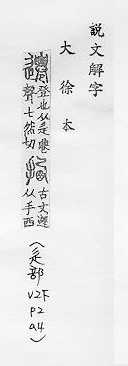 說文解字
大徐本
登也从辵䙴
聲七然切
古文遷
从手西
(辵部
V2下
P2
a4)